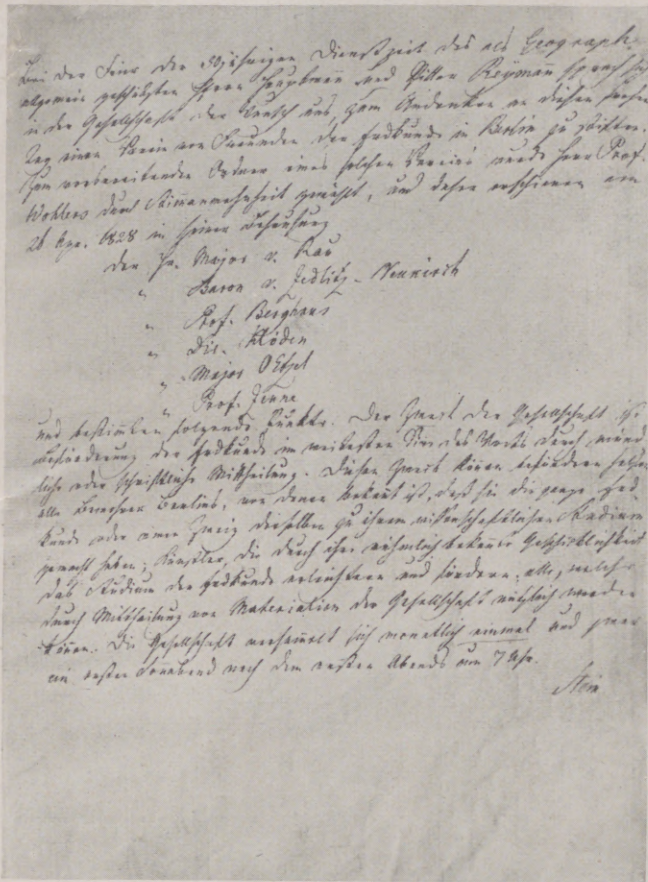 Bei der Feier der 50jährigen Dienstzeit des als Geograph
allgemein geschätzten Herrn Hauptmann und Ritter Reymann sprach sich
in der Gesellschaft der Wunsch aus, zum Andenken an diesen frohen
Tag einen Verein von Freunden der Erdkunde in Berlin zu stiften.
Zum vorbereitenden Ordner eines solchen Vereins wurde Herr Prof.
Wohlers durch Stimmenmehrheit gewählt, und daher erschienen am
26 Apr. 1828 in seiner Behausung
Die Hn. Major v. Rau
" Baron v. Zedlitz-Neukirch
" Prof. Berghaus
" Dir. Klöden
" Major OEtzel
" Prof. Zeune
und bestimmten folgende Punkte. Der Zweck der Gesellschaft ist
Beförderung der Erdkunde im weitesten Sinn des Worts durch münd-
liche oder schriftliche Mittheilung. Diesen Zweck können befördern helfen
alle Bewohner Berlins, von denen bekannt ist, daß sie die ganze Erd-
kunde oder einen Zweig derselben zu ihrem wissenschaftlichen Studium
gemacht haben; Künstler, die durch ihre rühmlich bekannte Geschicklichkeit
das Studium der Erdkunde erleichtern und fördern; alle, welche
durch Mittheilung von Materialien der Gesellschaft nützlich werden
können. Die Gesellschaft versammelt sich monatlich einmal und zwar
am ersten Sonnabend nach dem ersten Abends um 7 Uhr.